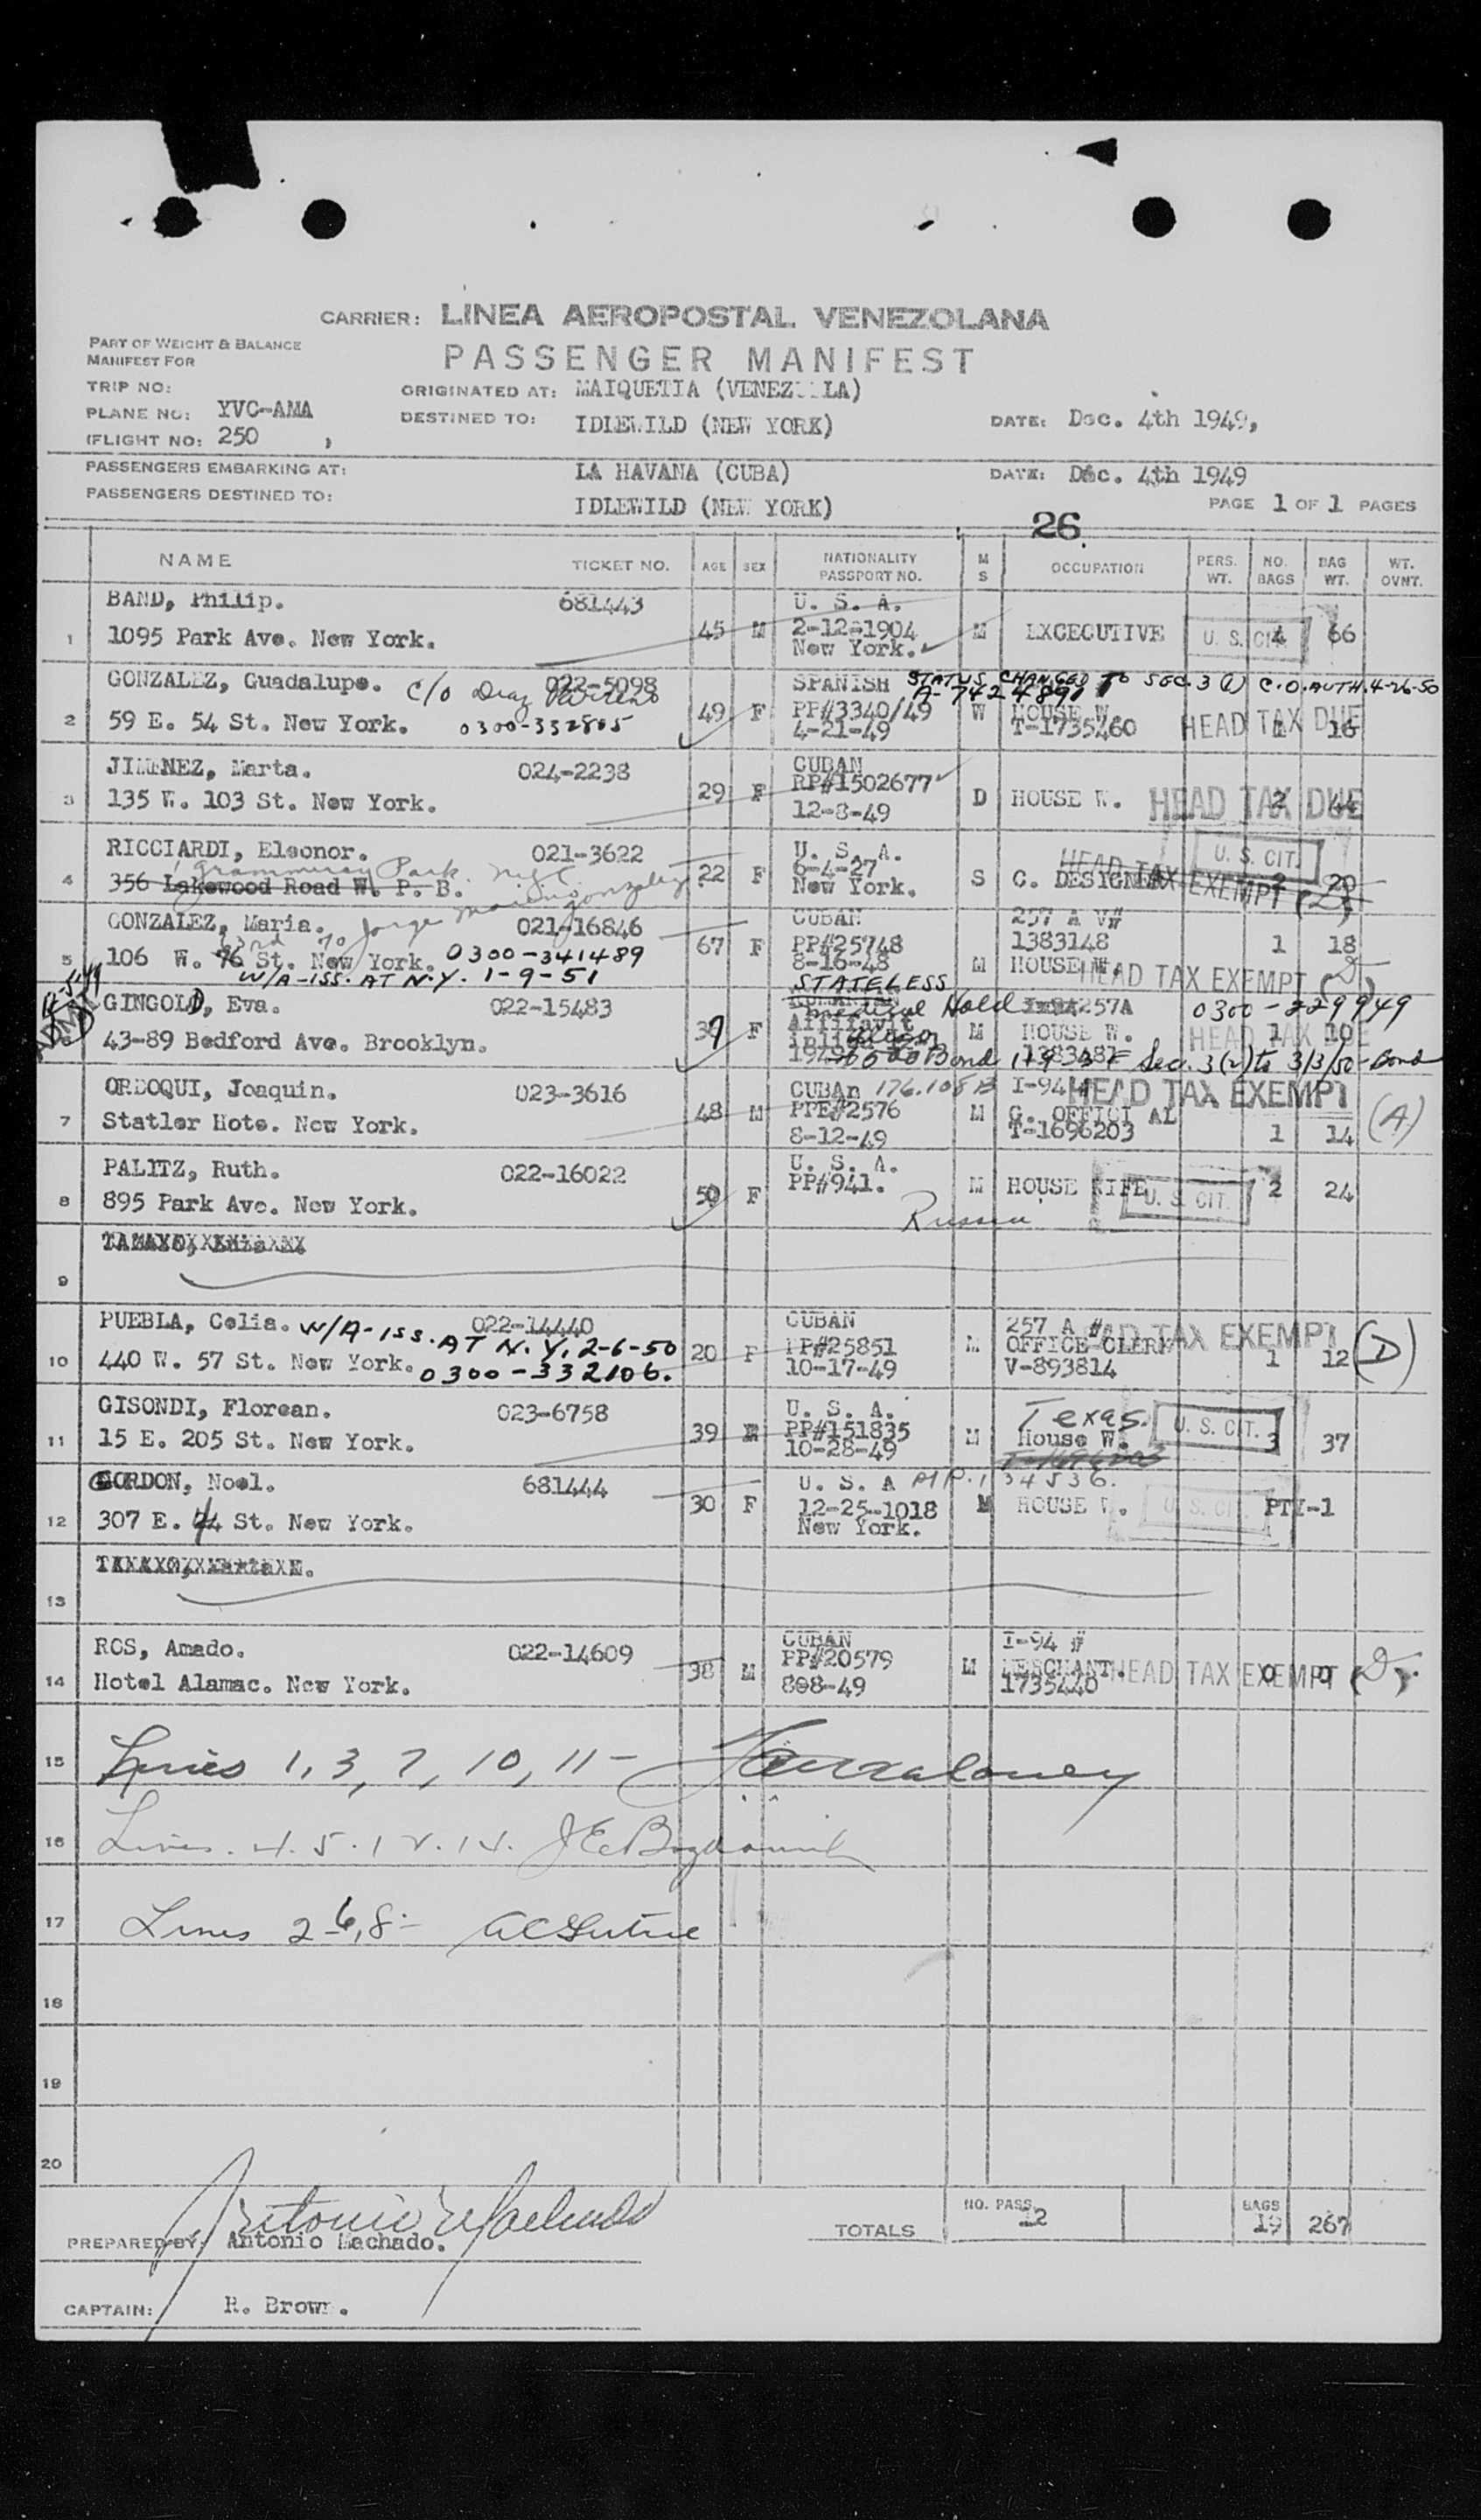 CARRIER: LINEA AEROPOSTAL VENEZOLANA
PART OF WEIGHT & BALANCE
MANIFEST FOR
PASSENGER MANIFEST
TRIP NO:
ORIGINATED AT: MAIQUETIA (VENEZ LA)
PLANE NO: YVC-AMA
DESTINED TO: IDLEWILD (NEW YORK)
DATE: Dec. 4th 1949,
FLIGHT NO: 250 ,
PASSENGERS EMBARKING AT: LA HAVANA (CUBA)
DATE: Dec. 4th 1949
PASSENGERS DESTINED TO: IDLEWILD (NEW YORK)
PAGE 1 OF 1 PAGES
26
NAME TICKET NO. AGE SEX NATIONALITY PASSPORT NO. M S OCCUPATION PERS. WT. NO. BAGS BAG WT. WT. OVNT.
BAND, Philip. 681443 U. S. A.
1 1095 Park Ave. New York. 45 M 2-12-1904 M EXCECUTIVE U. S. CIT. 4 66
New York.
GONZALEZ, Guadalupe. c/o Diaz 022-5098 SPANISH STATUS CHANGED TO SEC. 3 (2) C.O. AUTH. 4-26-50
A-7424891
2 59 E. 54 St. New York. 0300-332805 49 F PP#3340/49 W HOUSE W. HEAD TAX DUE 1 16
4-21-49 T-1735460
JIMENEZ, Marta. 024-2238 CUBAN
RP#1502677
3 135 W. 103 St. New York. 29 F 12-8-49 D HOUSE W. HEAD TAX DUE 2 44
RICCIARDI, Eleonor. 021-3622 U. S. A. U. S. CIT.
Park. 6-4-27 HEAD TAX EXEMPT (D)
4 356 Lakewood Road W. P. B. 22 F New York. S C. DESIGNER 2 20
GONZALEZ, Maria. 021-16846 CUBAN 257 A V#
To Jorge Gonzalez
5 106 W. 96 St. New York. 0300-341489 67 F PP#25748 1383148 1 18
8-16-48 M HOUSE W. HEAD TAX EXEMPT (D)
W/A-ISS. AT N.Y. 1-9-51
STATELESS
GINGOLD, Eva. 022-15483 Medical Hold 257A 0300-229949
6 43-89 Bedford Ave. Brooklyn. 39 F Affifavit M HOUSE W. HEAD TAX DUE 1 10
Bond 1383481 Sec. 3(2) to 3/3/50-Bond
ORDOQUI, Joaquin. 023-3616 CUBAn 176.108B I-94 # HEAD TAX EXEMPT (A)
7 Statler Hote. New York. 48 M PPE#2576 M G. OFFICI AL
8-12-49 T-1696203 1 14
PALITZ, Ruth. 022-16022 U. S. A.
8 895 Park Ave. New York. 50 F PP#941. M HOUSE WIFE U. S. CIT. 2 24
Russia
9
PUEBLA, Celia. W/A-ISS. AT N.Y. 2-6-50 022-14440 CUBAN 257 A # HEAD TAX EXEMPT (D)
10 440 W. 57 St. New York. 0300-332106. 20 F PP#25851 M OFFICE CLERK 1 12
10-17-49 V-893814
GISONDI, Florean. 023-6758 U. S. A. Texas. U. S. CIT.
11 15 E. 205 St. New York. 39 F PP#151835 M House W. 3 37
10-28-49
GORDON, Noel. 681444 U. S. A
12 307 E. 44 St. New York. 30 F 12-25-1018 M HOUSE W. U. S. CIT. PTY-1
New York.
13
ROS, Amado. 022-14609 CUBAN I-94 #
PP#20579
14 Hotel Alamac. New York. 38 M 808-49 M MERCHANT. HEAD TAX EXEMPT (D) 0 0
1735440
15 Lines 1, 3, 7, 10, 11 -
16 Lines. 4. 5. 12. 14.
17 Lines 2-6, 8 -
18
19
20
TOTALS NO. PASS. 12 BAGS 19 267
PREPARED BY: Antonio Machado.
CAPTAIN: R. Brown.